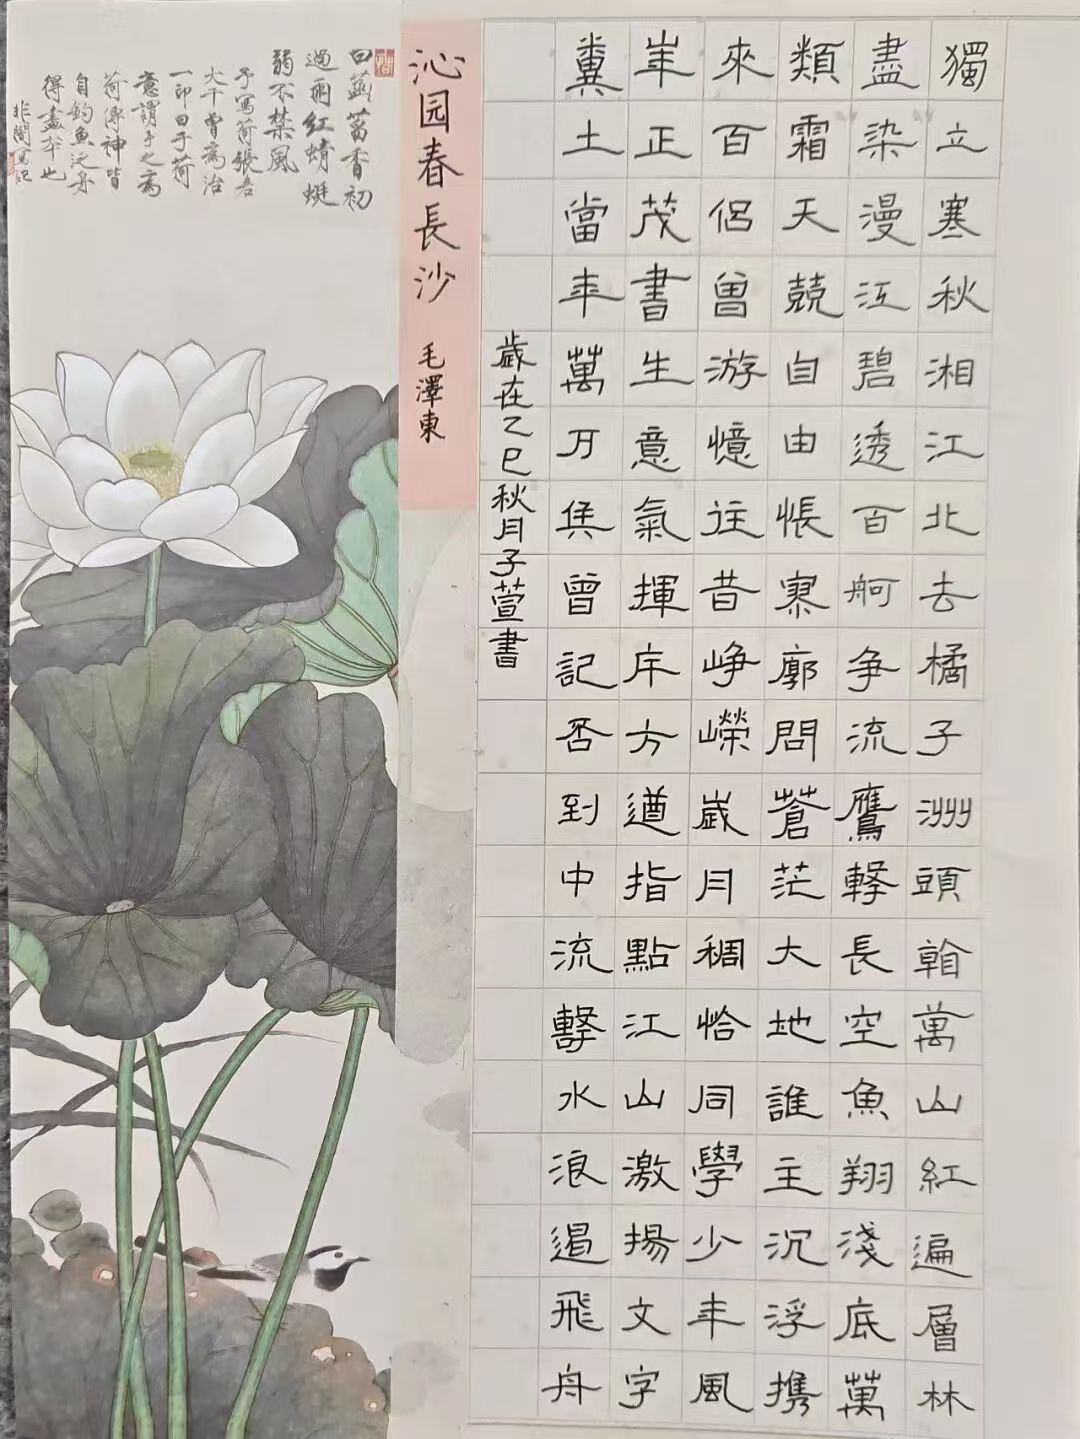 獨立寒秋湘江北去橘子洲頭翰萬山紅遍層林
盡染漫江碧透百舸争流鷹擊長空魚翔淺底萬
類霜天競自由悵寥廓問蒼茫大地誰主沉浮携
來百侣曾游憶往昔崢嶸歲月稠恰同學少年風
華正茂書生意氣揮斥方遒指點江山激揚文字
糞土當年萬户侯曾記否到中流擊水浪遏飛舟
歲在乙巳秋月子萱書
沁园春長沙 毛澤東
白菡萏香初
過雨紅蜻蜓
弱不禁風
予寫荷張君
大千曾為治
一印曰予荷
意謂予之為
荷傳神皆
自釣魚泛舟
得畫本也
非闇寫記